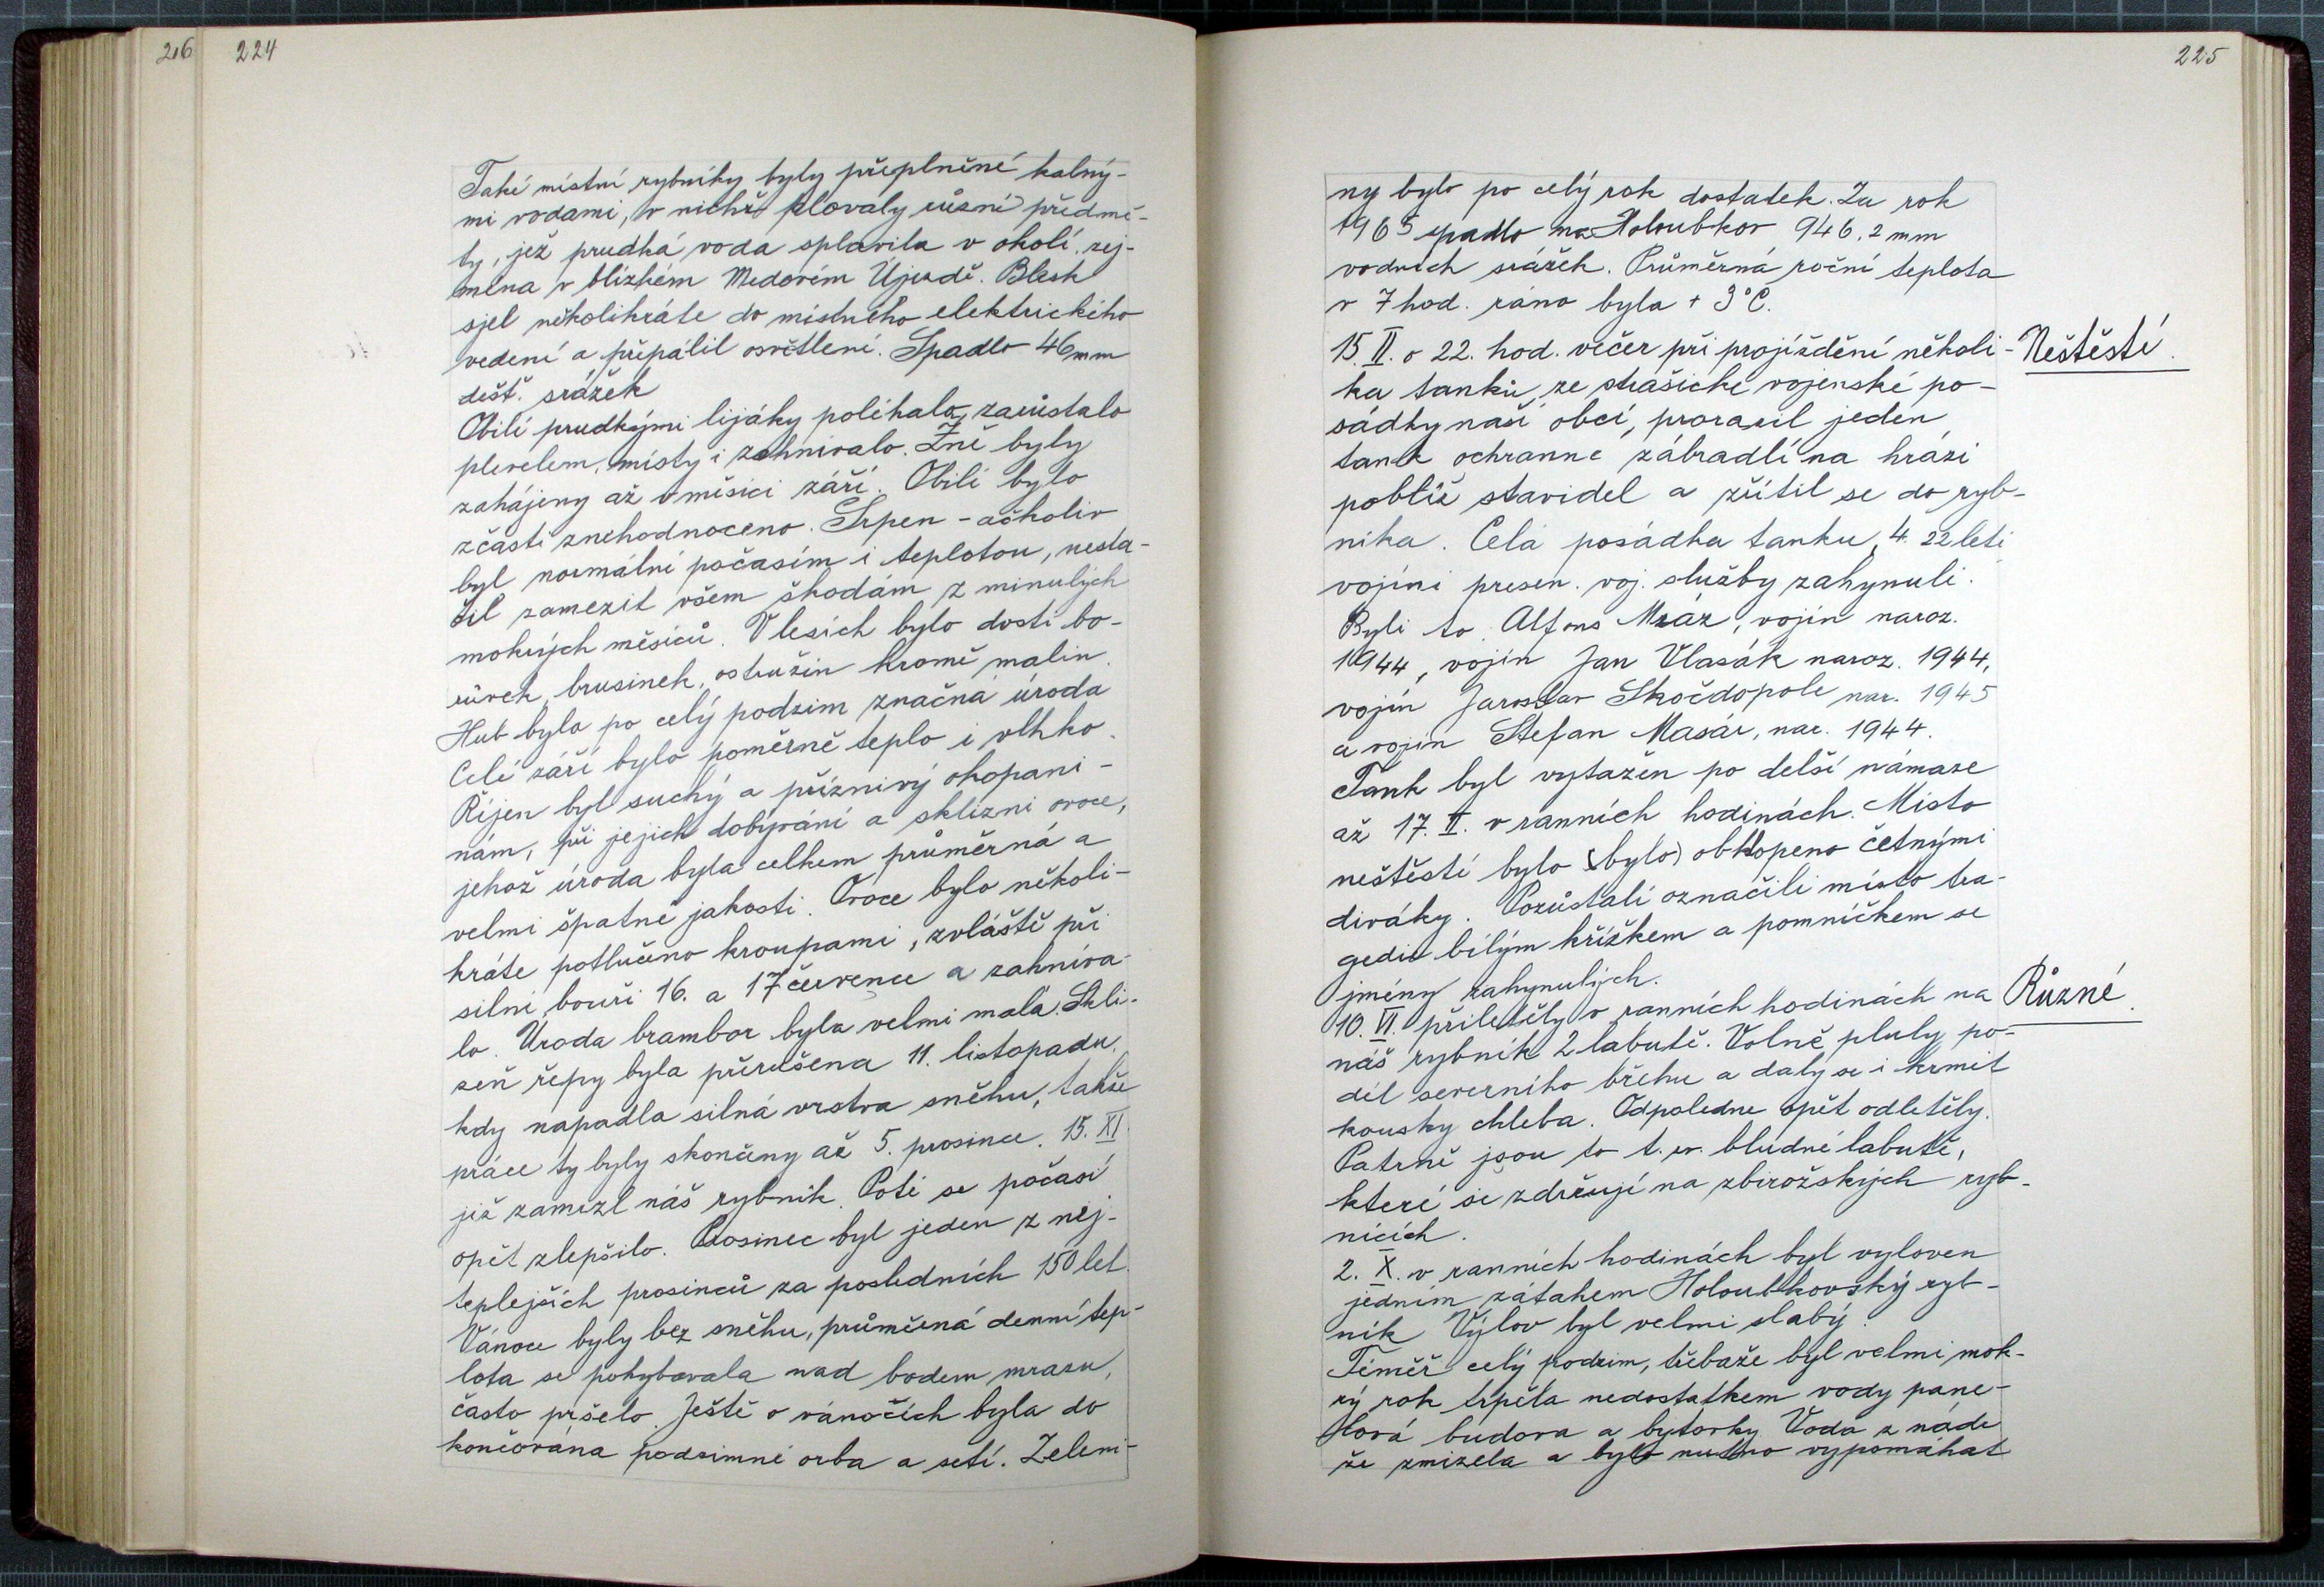 216 224
Také místní rybníky byly přeplněné kalný-
mi vodami, v nichž plovaly různé předmě-
ty, jež prudká voda splavila v okolí, zej-
ména v blízkém Medovém Újezdě. Blesk
sjel několikráte do místního elektrického
vedení a přepálil osvětlení. Spadlo 46 mm
dešť. srážek
Obilí prudkými lijáky poléhalo, zarůstalo
plevelem, místy i zahnívalo. Žně byly
zahájeny až v měsíci září. Obilí bylo
zčásti znehodnoceno. Srpen - ačkoliv
byl normální počasím i teplotou, nesta-
čil zamezit všem škodám z minulých
mokrých měsíců. V lesích bylo dosti bo-
růvek, brusinek, ostružin kromě malin.
Hub byla po celý podzim značná úroda
Celé září bylo poměrně teplo i vlhko.
Říjen byl suchý a příznivý okopani-
nám, při jejich dobývání a sklizni ovoce,
jehož úroda byla celkem průměrná a
velmi špatné jakosti. Ovoce bylo několi-
kráte potlučeno kroupami, zvláště při
silné bouři 16. a 17 července a zahníva-
lo. Úroda brambor byla velmi malá. Skli-
zeň řepy byla přerušena 11. listopadu,
kdy napadla silná vrstva sněhu, takže
práce ty byly skončeny až 5. prosince. 15. XI.
již zamrzl náš rybník. Poté se počasí
opět zlepšilo. Prosinec byl jeden z nej-
teplejších prosinců za posledních 150 let.
Vánoce byly bez sněhu, průměrná denní tep-
lota se pohybovala nad bodem mrazu,
často pršelo. Ještě o vánočích byla do
končována podzimní orba a setí. Zeleni-
225
ny bylo po celý rok dostatek. Za rok
1965 spadlo na Holoubkov 946,2 mm
vodních srážek. Průměrná roční teplota
v 7 hod. ráno byla + 3°C.
15. II. o 22. hod. večer při projíždění několi-
Neštěstí.
ka tanků, ze strašické vojenské po-
sádky naší obcí, prorazil jeden
tank ochranné zábradlí na hrázi
poblíž stavidel a zřítil se do ryb-
níka. Celá posádka tanku, 4. 22letí
vojíni presen. voj. služby zahynuli.
Byli to Alfons Mráz, vojín naroz.
1944, vojín Jan Vlasák naroz. 1944,
vojín Jaroslav Skočdopole nar. 1945
a vojín Štefan Masár, nar. 1944.
Tank byl vytažen po delší námaze
až 17. II. v ranních hodinách. Místo
neštěstí bylo (bylo) obklopeno četnými
diváky. Pozůstalí označili místo tra-
gedie bílým křížkem a pomníčkem se
jmény zahynulých.
10. VI. přiletěly v ranních hodinách na
Různé.
náš rybník 2 labutě. Volně pluly po-
dél severního břehu a daly se i krmit
kousky chleba. Odpoledne opět odletěly.
Patrně jsou to t. zv. bludné labutě,
které se zdržují na zbirožských ryb-
nících.
2. X. v ranních hodinách byl vyloven
jedním zátahem Holoubkovský ryb-
ník Výlov byl velmi slabý.
Téměř celý podzim, třebaže byl velmi mok-
rý rok trpěla nedostatkem vody pane-
lová budova a bytovky. Voda z nádr
že zmizela a bylo nutno vypomáhat